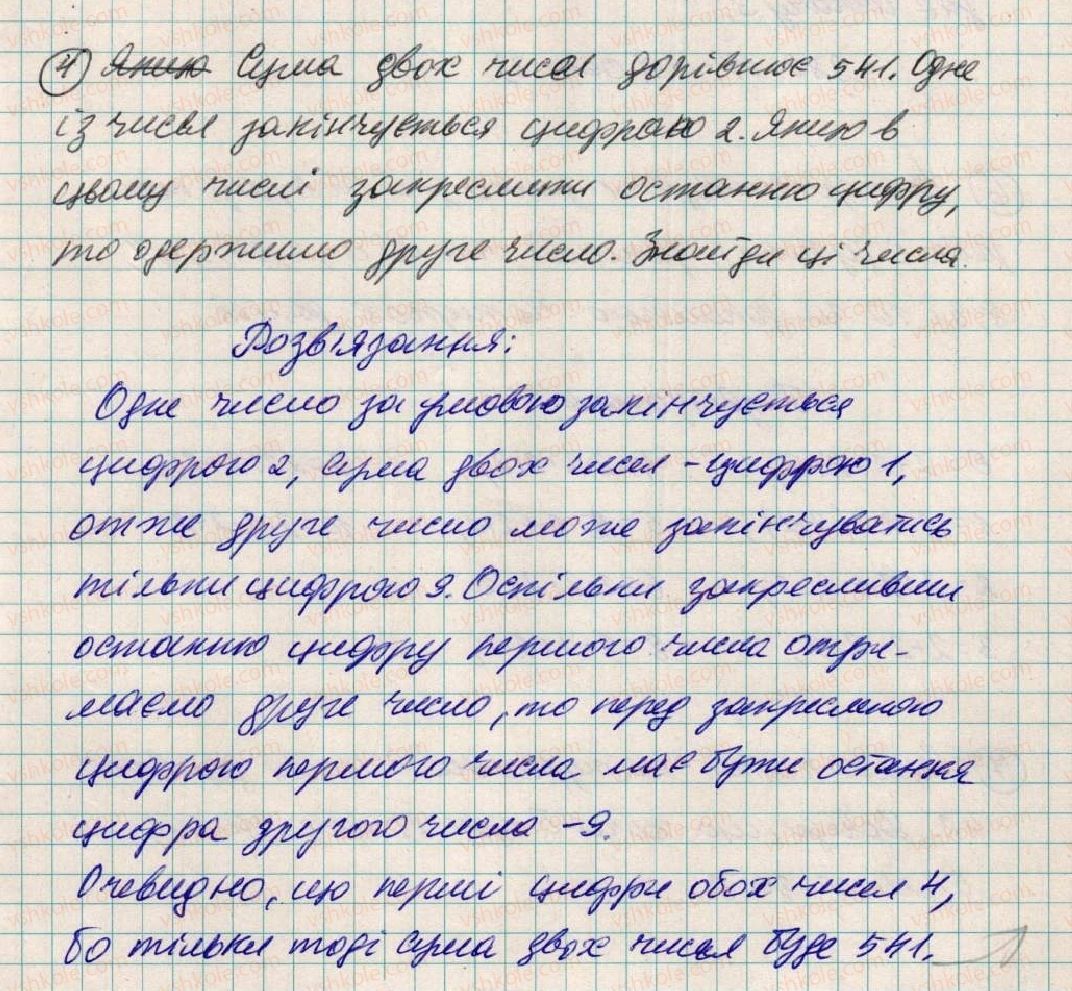 4) Якщо Сума двох чисел дорівнює 541. Одне
із чисел закінчується цифрою 2. Якщо в
цьому числі закреслити останню цифру,
то одержимо друге число. Знайди ці числа.
Розв'язання:
Одне число за умовою закінчується
цифрою 2, сума двох чисел - цифрою 1,
отже друге число може закінчуватись
тільки цифрою 9. Оскільки закресливши
останню цифру першого числа отри-
маємо друге число, то перед закресленою
цифрою першого числа має бути остання
цифра другого числа - 9.
Очевидно, що перші цифри обох чисел 4,
бо тільки тоді сума двох чисел буде 541.